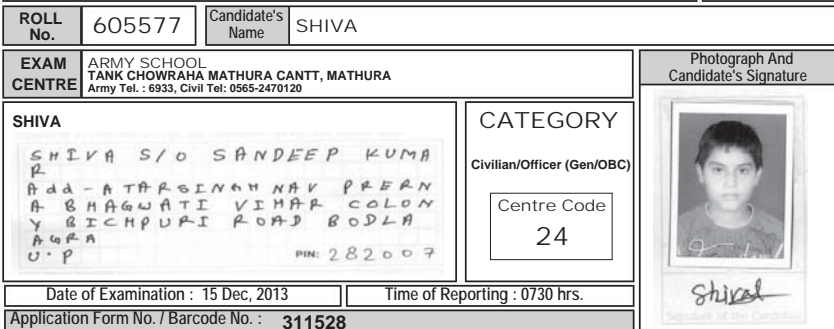 ROLL No. 605577 Candidate's Name SHIVA
EXAM CENTRE ARMY SCHOOL
TANK CHOWRAHA MATHURA CANTT, MATHURA
Army Tel. : 6933, Civil Tel: 0565-2470120
Photograph And
Candidate's Signature
SHIVA
SHIVA S/O SANDEEP KUMA
R
Add-ATARSINGH NAV PRERN
A BHAGWATI VIHAR COLON
Y BICHPURI ROAD BODLA
AGRA
U.P PIN: 282007
CATEGORY
Civilian/Officer (Gen/OBC)
Centre Code
24
Shival
Signature of the Candidate
Date of Examination : 15 Dec, 2013 Time of Reporting : 0730 hrs.
Application Form No. / Barcode No. : 311528